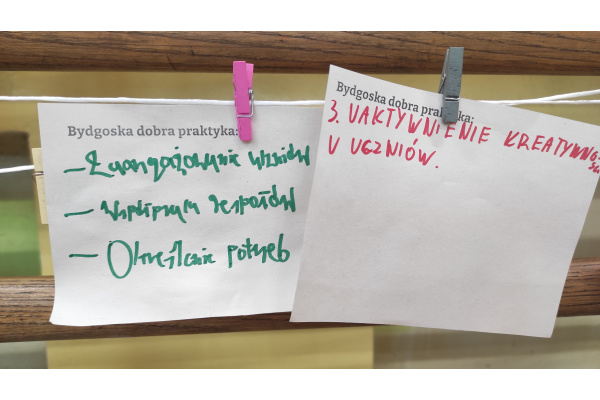 Bydgoska dobra praktyka:
– Zaangażowanie uczniów
– Współpraca zespołów
– Określenie potrzeb
Bydgoska dobra praktyka:
3. UAKTYWNIENIE KREATYWNOŚCI
U UCZNIÓW.